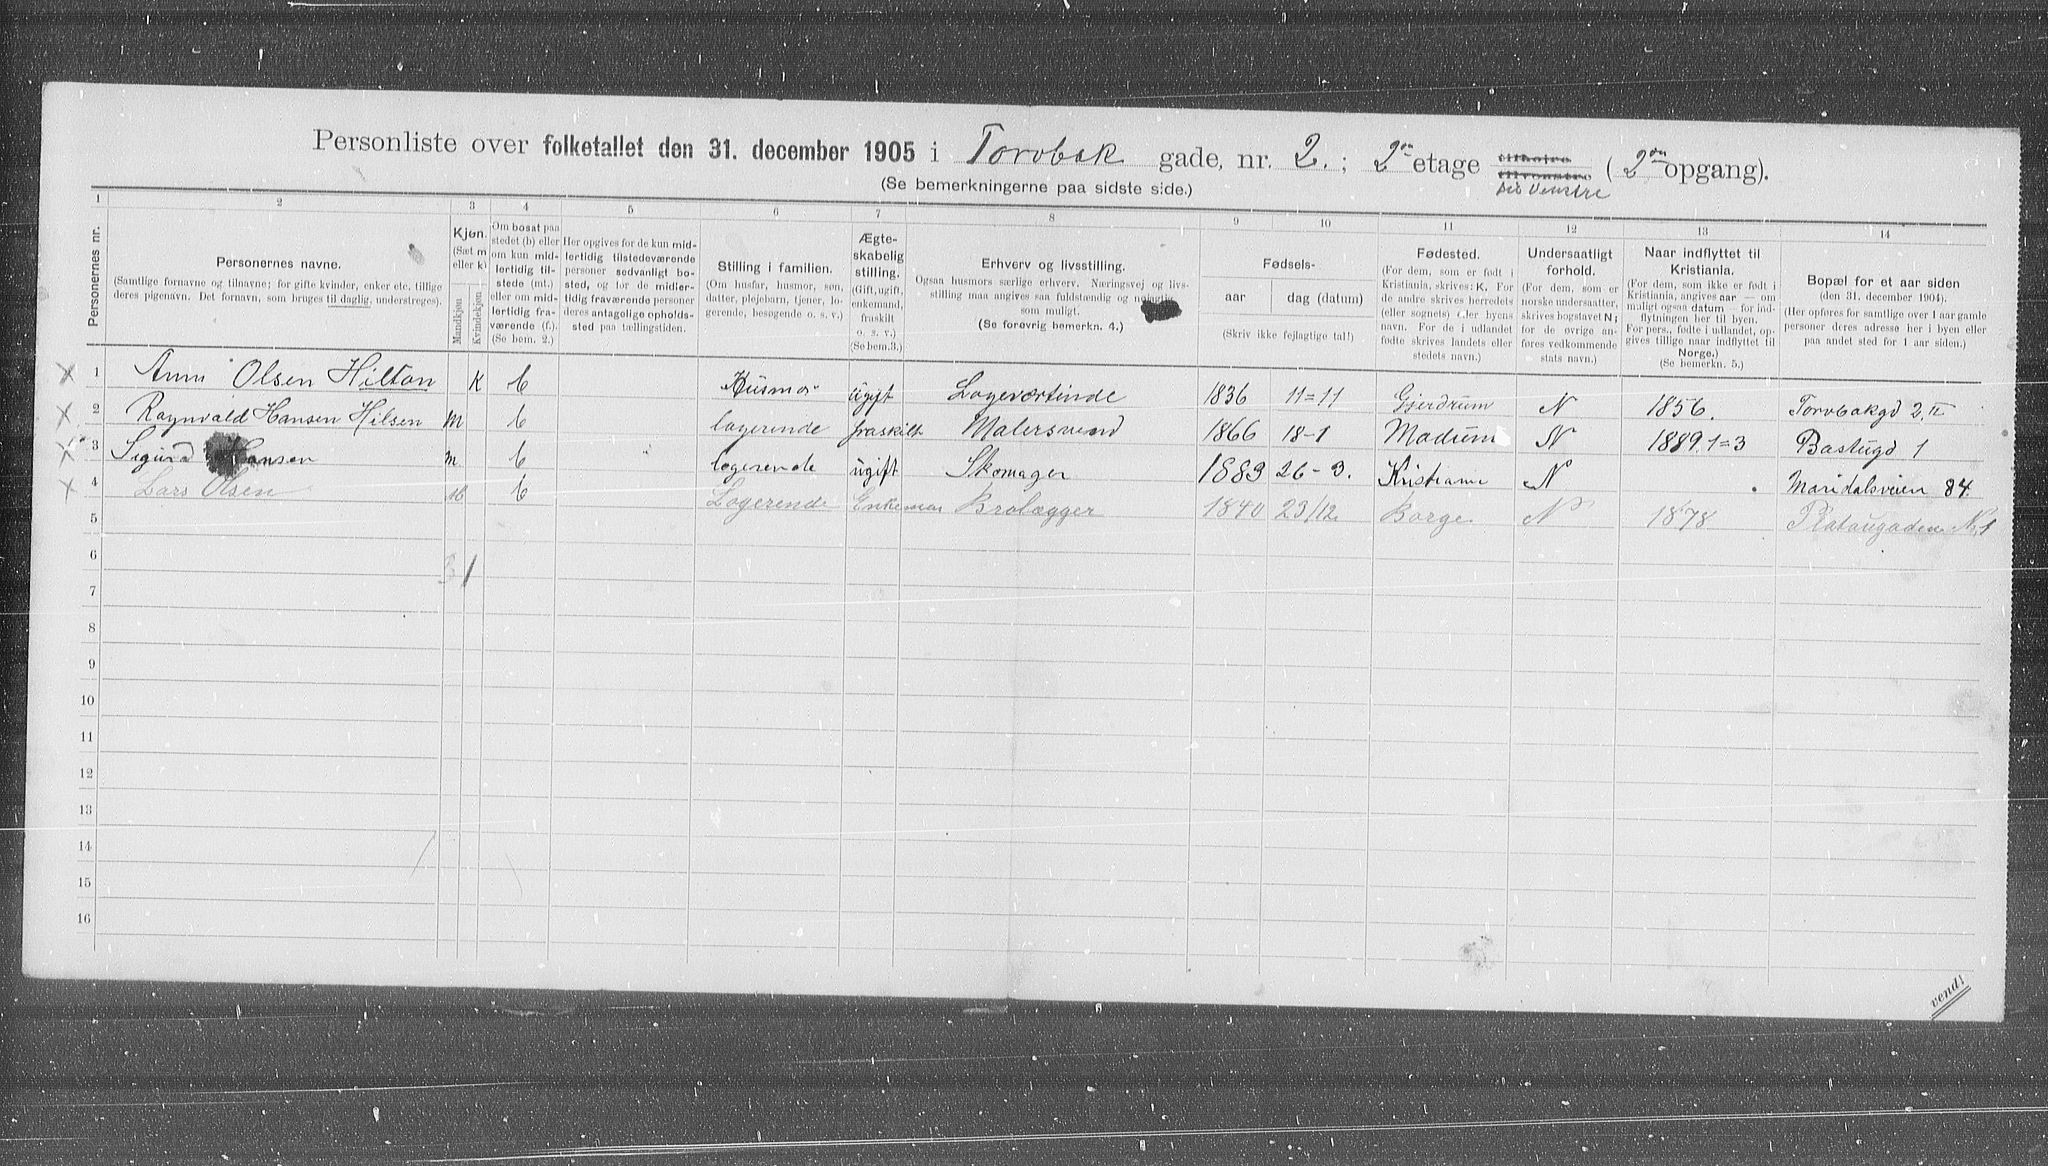 Personliste over folketallet den 31. december 1905 i Torvbak gade, nr. 2. ; 2den etage til høire til venstre ( 2den opgang).
(Se bemerkningerne paa sidste side.) Venstre
1 2 3 4 5 6 7 8 9 10 11 12 13 14
Personernes nr.
Personernes navne.
(Samtlige fornavne og tilnavne; for gifte kvinder, enker etc. tillige
deres pigenavn. Det fornavn, som bruges til daglig, understreges).
Kjøn.
(Sæt m
eller k)
Mandkjøn
Kvindekjøn
Om bosat paa
stedet (b) eller
om kun mid-
lertidig til-
stede (mt.)
eller om mid-
lertidig fra-
værende (f.).
(Se bem. 2.)
Her opgives for de kun mid-
lertidig tilstedeværende
personer sedvanligt bo-
sted, og for de midler-
tidig fraværende personer
deres antagelige opholds-
sted paa tællingstiden.
Stilling i familien.
(Om husfar, husmor, søn,
datter, plejebarn, tjener, lo-
gerende, besøgende o. s. v.)
Ægte-
skabelig
stilling.
(Gift, ugift,
enkemand,
fraskilt
o. s. v.)
(Se bem.3.)
Erhverv og livsstilling.
Ogsaa husmors særlige erhverv. Næringsvej og livs-
stilling maa angives saa fuldstændig og
som muligt.
(Se forøvrig bemerkn. 4.)
Fødsels-
aar dag (datum)
(Skriv ikke fejlagtige tal!)
Fødested.
(For dem, som er født i
Kristiania, skrives: K. For
de andre skrives herredets
(eller sognets) eller byens
navn. For de i udlandet
fødte skrives landets eller
stedets navn.)
Undersaatligt
forhold.
(For dem, som er
norske undersaatter,
skrives bogstavet N;
for de øvrige an-
føres vedkommende
stats navn.)
Naar indflyttet til
Kristiania.
(For dem, som ikke er født i
Kristiania, angives aar — om
muligt ogsaa datum — for ind-
flytningen her til byen.
For pers., fødte i udlandet, op-
gives tillige naar indflyttet til
Norge.)
(Se bemerkn. 5.)
Bopæl for et aar siden
(den 31. december 1904).
(Her opføres for samtlige over 1 aar gamle
personer deres adresse her i byen eller
paa andet sted for 1 aar siden.)
x 1 Anni Olsen Hilton K b Husmor ugift Logeværtinde 1836 11=11 Gjerdrum N 1856. Torvbakgd 2, II
x 2 Ragnvald Hansen Hilsen m b logerende fraskilt Malersvend 1866 18-1 Modum N 1889 1=3 Bastugd 1
x 3 Sigurd Hansen m b logerende ugift Skomager 1883 26-3. Kristiania N Maridalsveien 84.
x 4 Lars Olsen M b Logerende Enkeman Brolægger 1840 23/12 Borge N 1878 Platougaden N 1
5
6
3 1
7
8
9
10
11
12
13
14
15
16
vend!